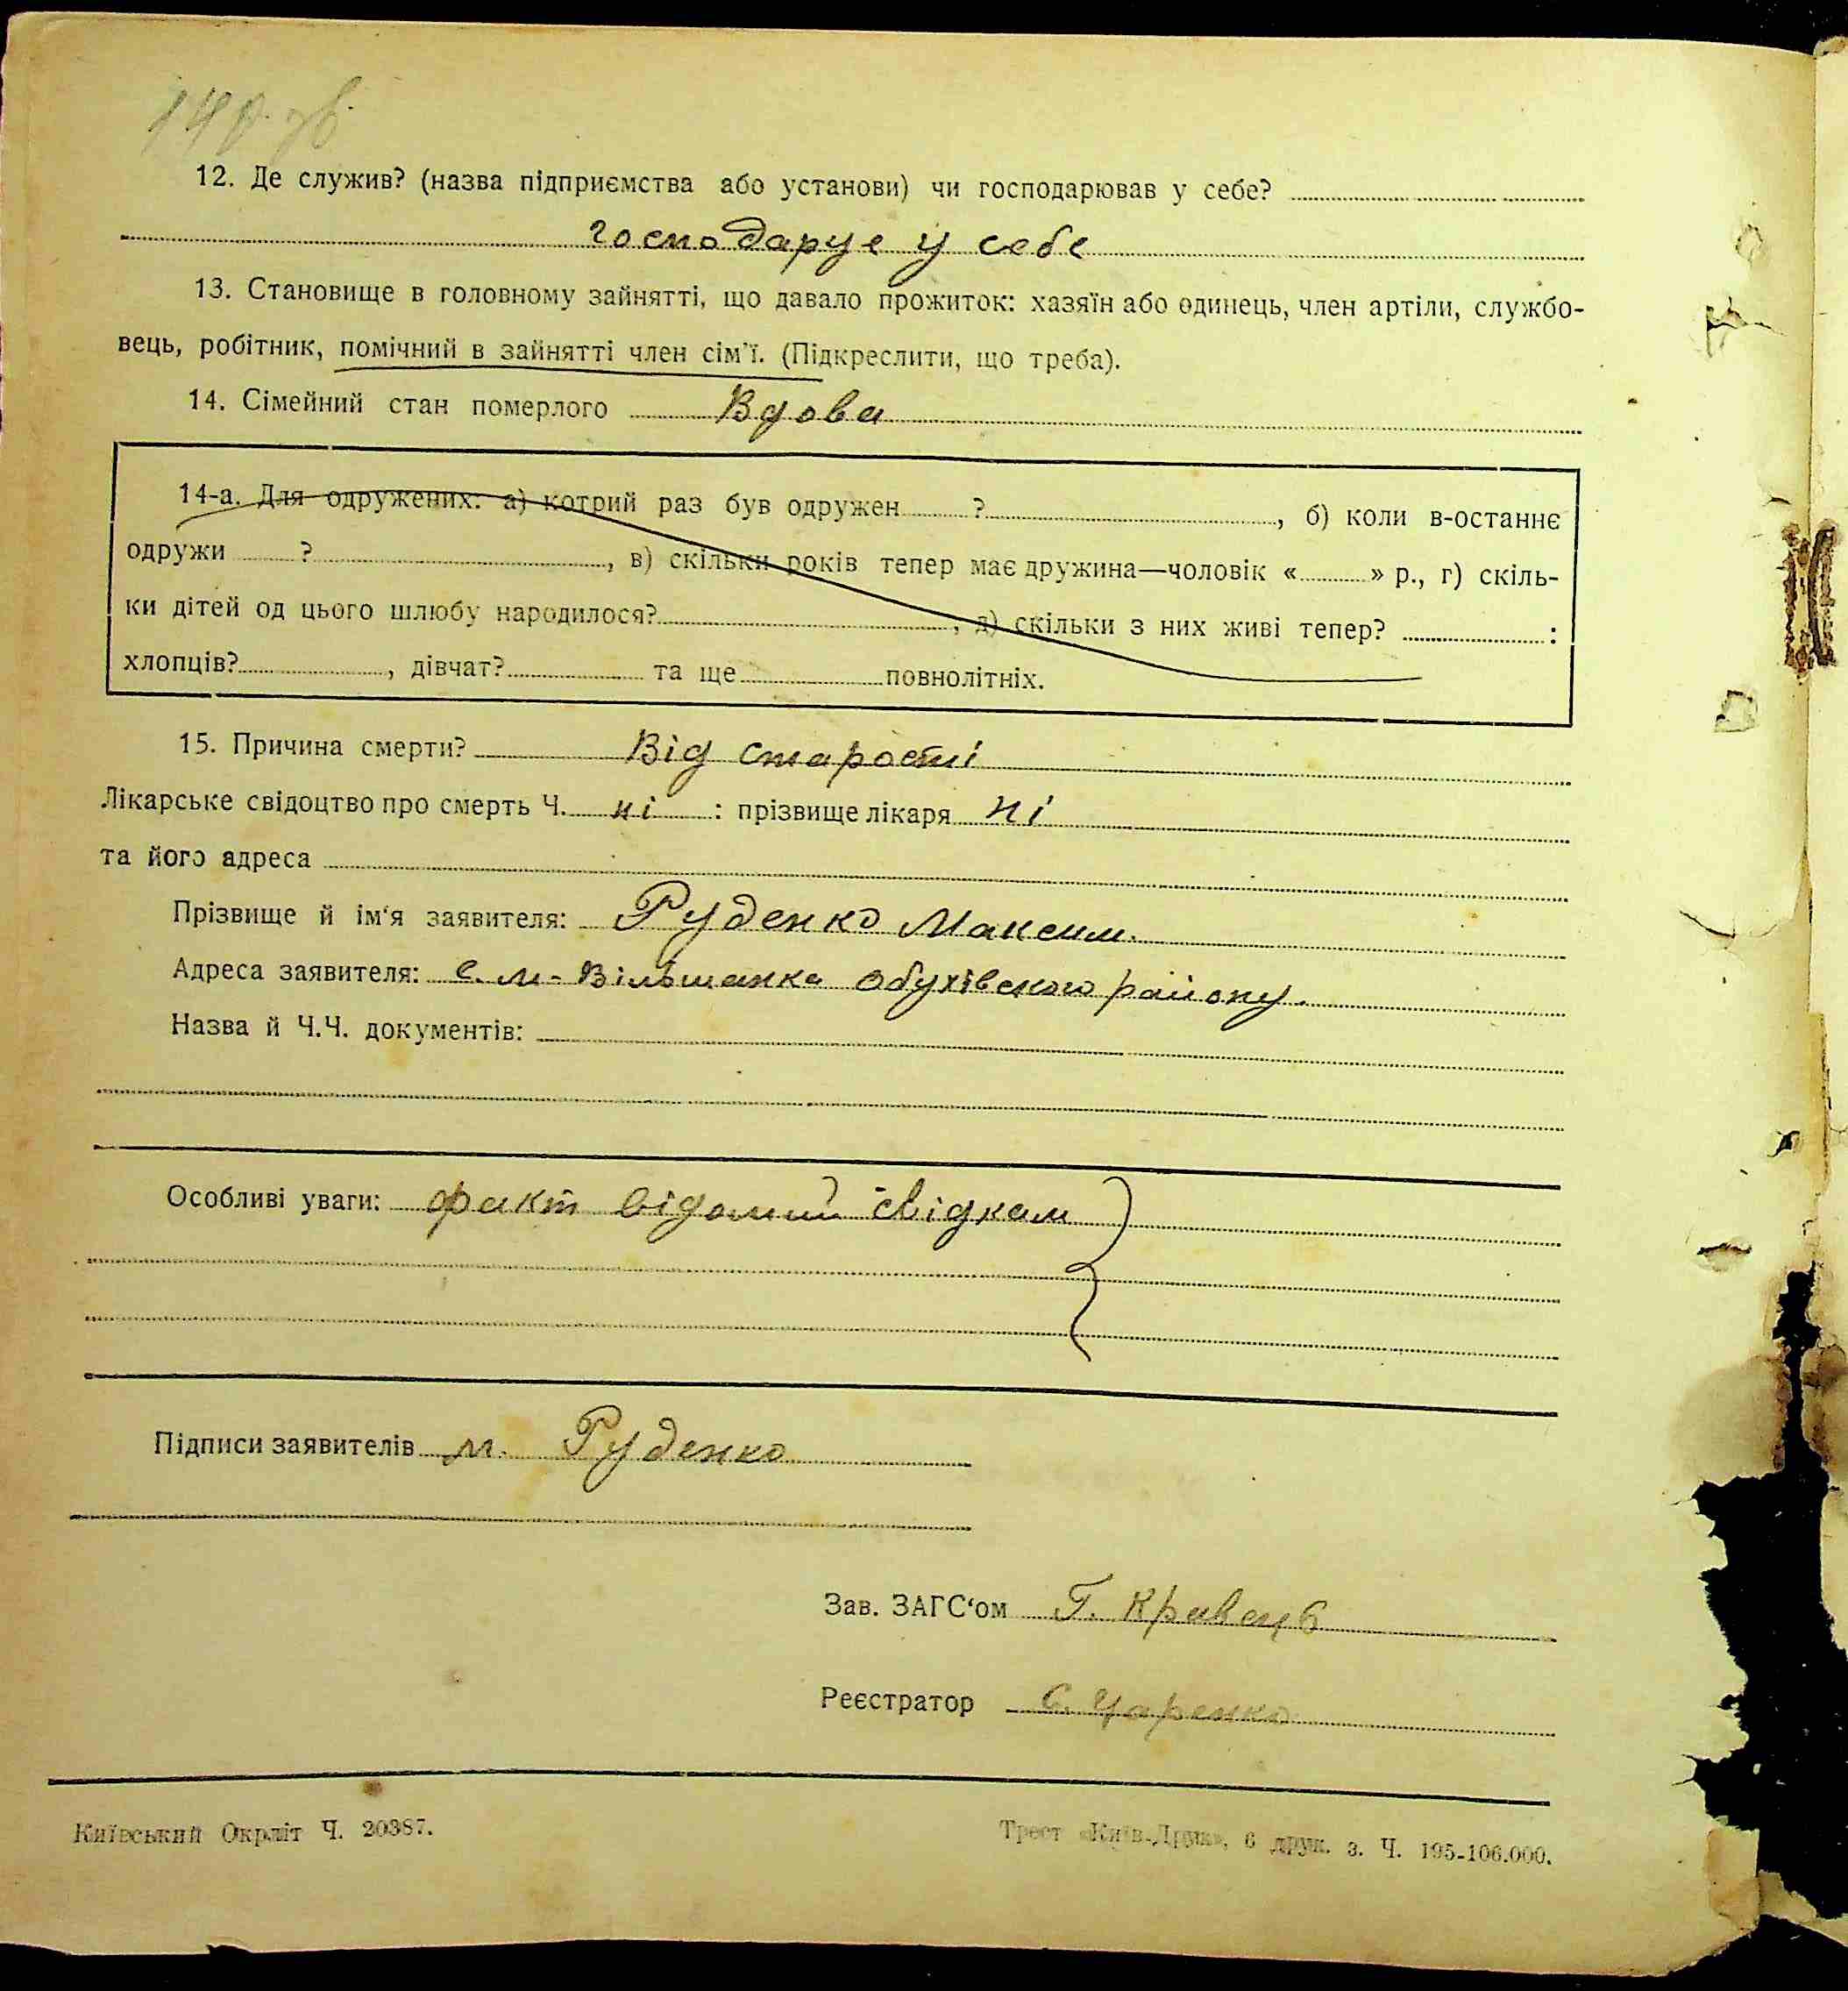 140 зв.
12. Де служив? (назва підприємства або установи) чи господарював у себе?
господарує у себе
13. Становище в головному зайнятті, що давало прожиток: хазяїн або одинець, член артіли, службо-
вець, робітник, помічний в зайнятті член сім'ї. (Підкреслити, що треба).
14. Сімейний стан померлого Вдова
14-а. Для одружених: а) котрий раз був одружен ? , б) коли в-останнє
одружи ? , в) скільки років тепер має дружина—чоловік « » р., г) скіль-
ки дітей од цього шлюбу народилося? , д) скільки з них живі тепер? :
хлопців? , дівчат? та ще повнолітніх.
15. Причина смерти? Від старості
Лікарське свідоцтво про смерть Ч. ні : прізвище лікаря ні
та його адреса
Прізвище й ім'я заявителя: Руденко Максим.
Адреса заявителя: с. м-Вільшанка Обухівского району.
Назва й Ч.Ч. документів:
Особливі уваги: факт відомий свідкам
Підписи заявителів М. Руденко
Зав. ЗАГС'ом Г. Кравець
Реєстратор С. Царенко
Київський Окрліт Ч. 20387.
Трест «Київ-Друк», 6 друк. з. Ч. 195-106.000.